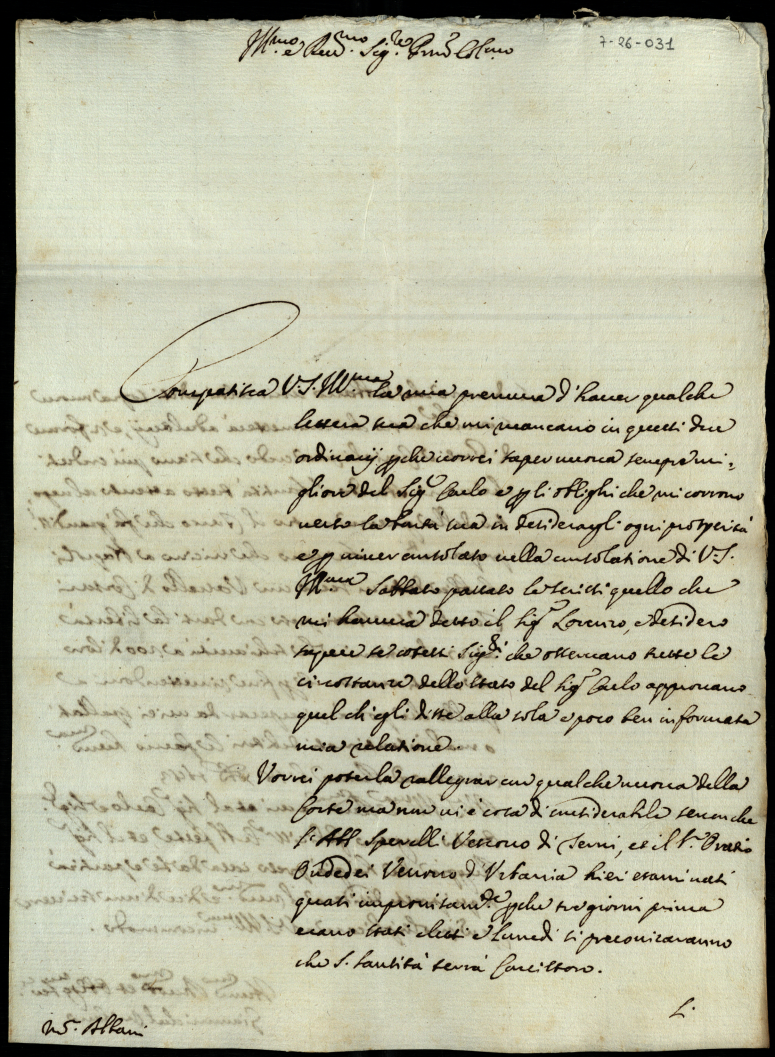 7-26-031
Ill.mo e Rev.mo Sig.re P.rone Col.mo
Compatisca V.S. Ill.ma la mia premura d'hauer qualche
lettera sua che mi mancano in questi due
ordinarij p che uorrei saper nuoua sempre mi-
gliore del Sig.r Carlo e p gli oblighi che mi corrono
uerso la bontà sua in desiderargli ogni prosperità
e p uiuer consolato nella consolatione di V.S.
Ill.ma Sabbato passato le scrissi quello che
mi haueua detto il Sig.r Lorenzo, e desidero
sapere se cotesti Sig.ri che osseruano tutte le
circostanze dello stato del Sig.r Carlo approuano
quel ch'egli disse alla sola e poco ben informata
mia relatione.
Vorrei poterla rallegrar con qualche nuoua della
Corte ma non ui è cosa di considerabile senon che
l'Ab. Sperelli Vescouo di Terni, et il S.r Oratio
Ondedei Vescouo d'Urbania hieri esaminati
quasi improuisam.te p che tre giorni prima
erano stati eletti e Lunedì si preconizaranno
che S. Santità terrà Concistoro.
L.
M.r Albani